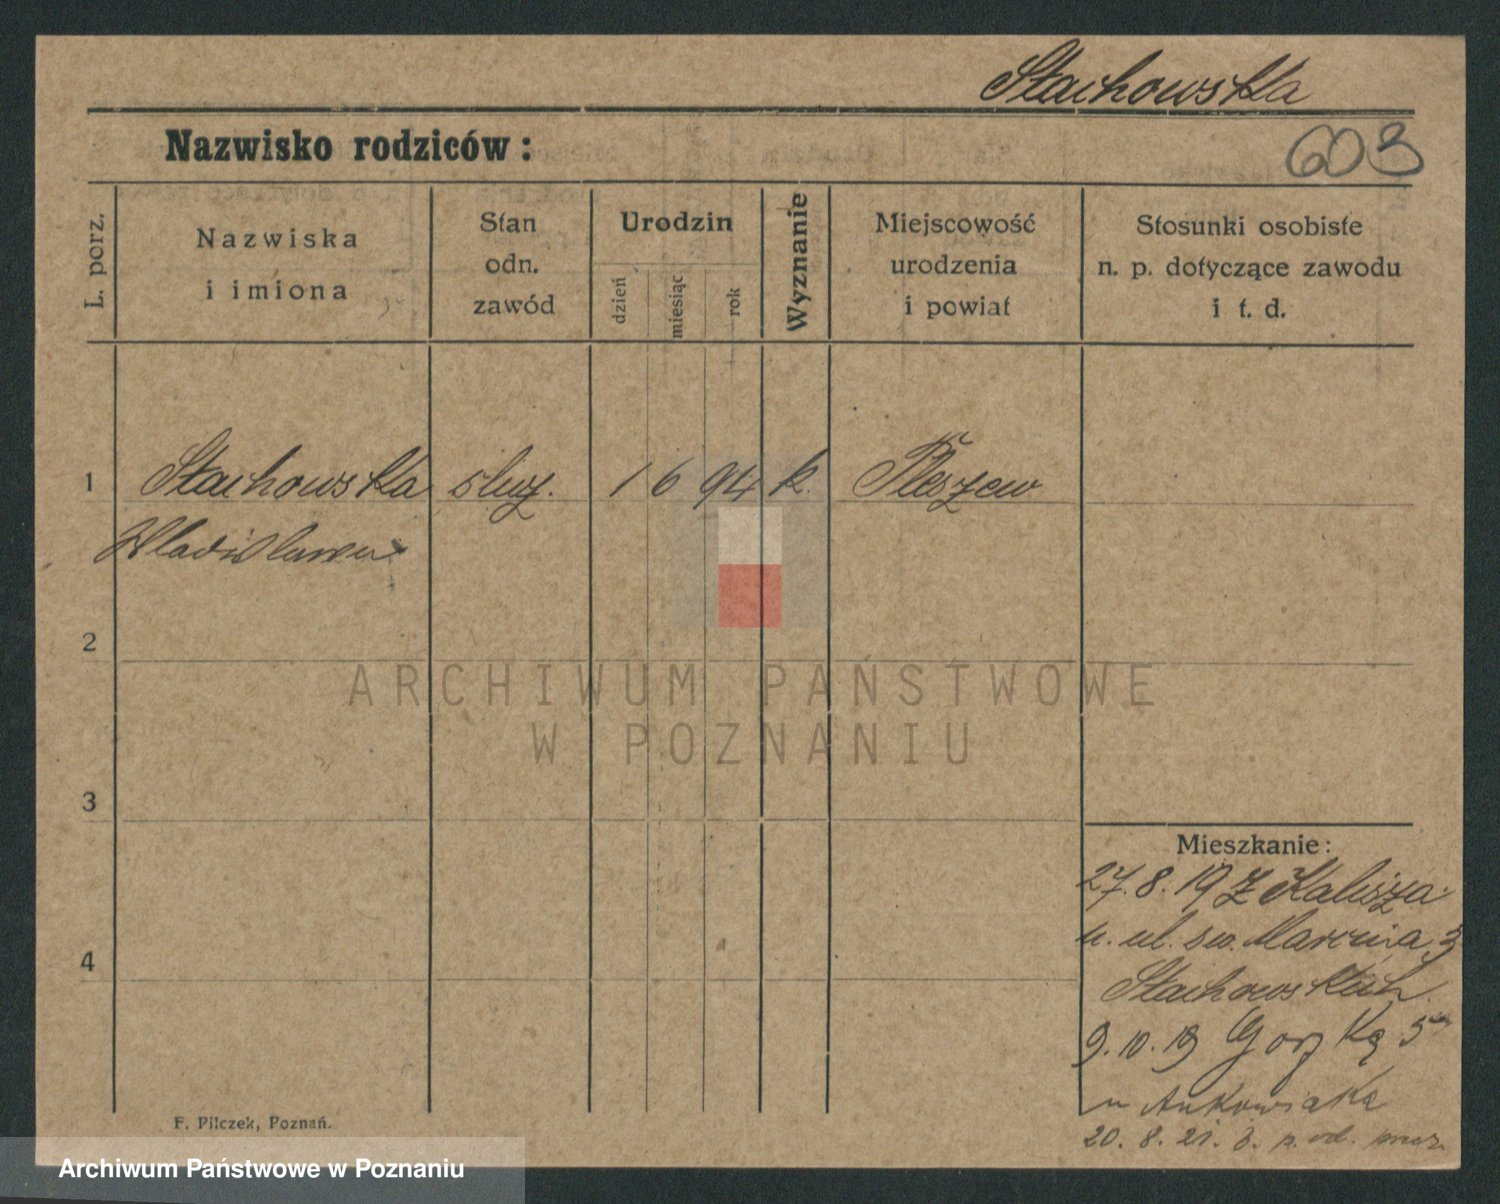 Stachowska
Nazwisko rodziców:
603
L. porz.
Nazwiska
i imiona
Stan
odn.
zawód
Urodzin
dzień
miesiąc
rok
Wyznanie
Miejscowość
urodzenia
i powiat
Stosunki osobiste
n. p. dotyczące zawodu
i t. d.
1 Stachowska służ. 1 6 94 k. Pleszew
Władisława
2
ARCHIWUM PAŃSTWOWE
W POZNANIU
3
Mieszkanie:
27.8.19 z Kalisza
u. ul. św. Marcina 3
4
Stachowskich
9.10.19 5
20. 8. 21.
F. Pilczek, Poznań.
Archiwum Państwowe w Poznaniu